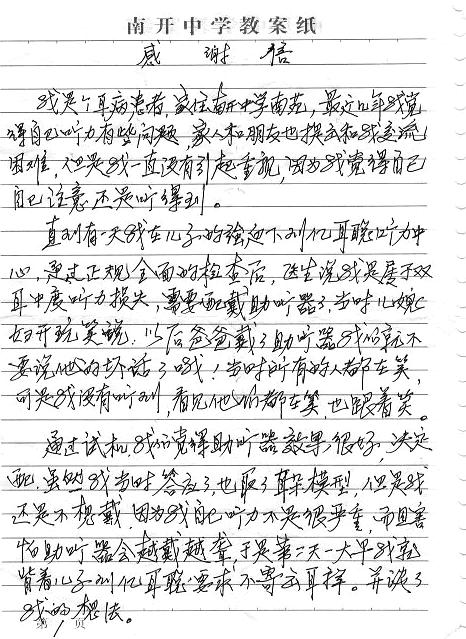 南开中学教案纸
感谢信
我是个耳病患者,家住南开中学南苑,最近几年我觉
得自己听力有些问题,家人和朋友也换去和我交流
困难,但是我一直没有引起重视,因为我觉得自己
自己注意还是听得到。
直到有一天我在儿子的强迫下到亿耳聪听力中
心,通过正规全面的检查后,医生说我是属于双
耳中度听力损失,需要配戴助听器,当时儿媳
妇开玩笑说,以后爸爸戴了助听器我们就不
要说他的坏话了哦!当时所有的人都在笑,
可是我没有听到,看见他们都在笑,也跟着笑。
通过试机我们觉得助听器效果很好,决定
配.虽然我当时答应了,也取了耳朵模型,但是我
还是不想戴,因为我自己听力不是很严重,而且害
怕助听器会越戴越聋,于是第二天一大早我就
背着儿子到亿耳聪要求不寄耳样。并谈了
我的想法。
第 页